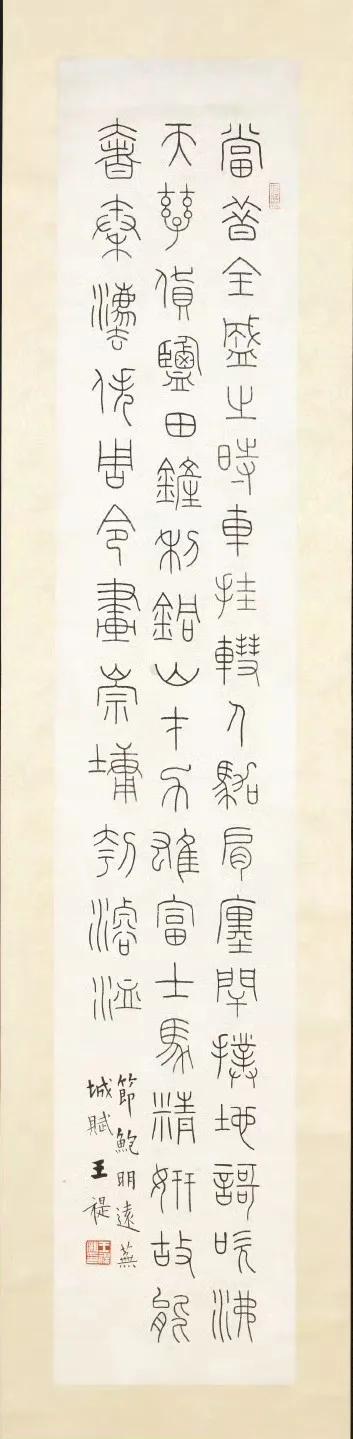 當昔全盛之時車挂轊人駕肩廛閈撲地謌吹沸
天孳貨鹽田鏟利銅山才力雄富士馬精妍故能
奢秦灋佚周令畫崇墉刳濬洫
節鮑明遠蕪
城賦王禔